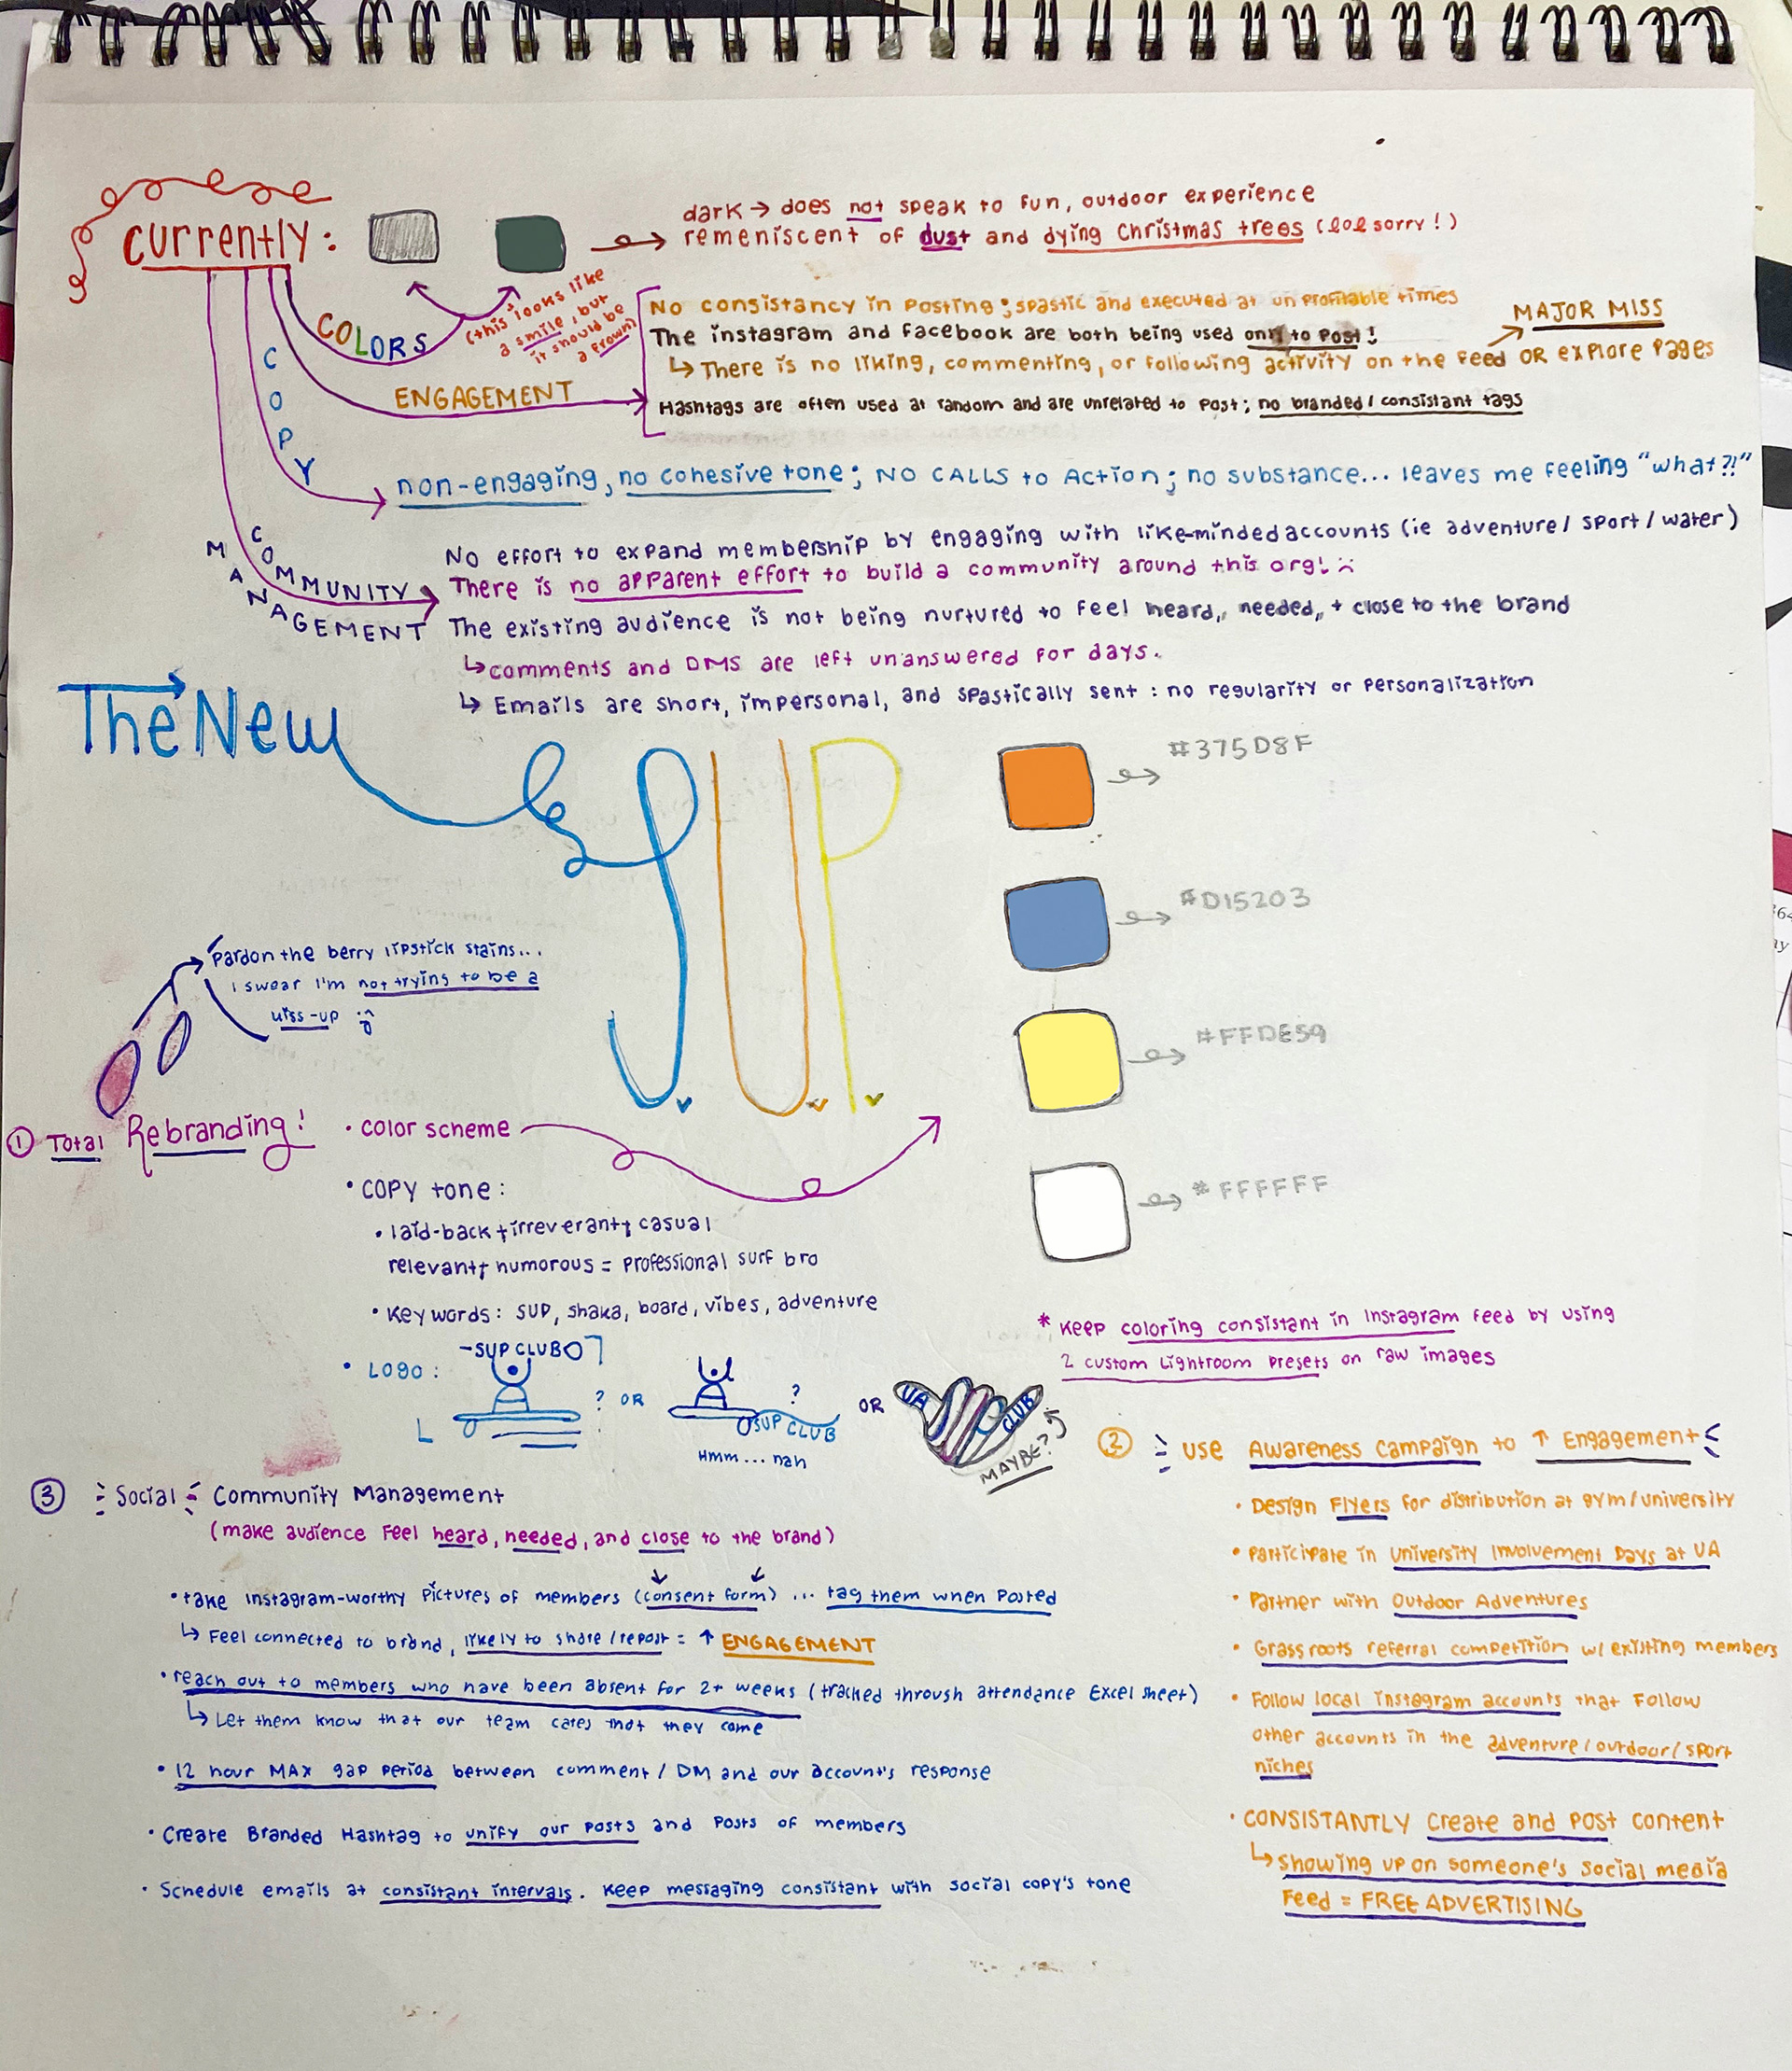 currently:
dark → does not speak to fun, outdoor experience
remeniscent of dust and dying Christmas trees (lol sorry!)
COLORS
(this looks like
a smile, but
it should be
a frown)
ENGAGEMENT
No consistancy in posting; spastic and executed at unprofitable times
The instagram and facebook are both being used only to post!
MAJOR MISS
↳ There is no liking, commenting, or following activity on the feed OR explore pages
Hashtags are often used at random and are unrelated to post; no branded/consistant tags
COPY
non-engaging, no cohesive tone; NO CALLS to Action; no substance... leaves me feeling "what?!"
COMMUNITY
MANAGEMENT
No effort to expand membership by engaging with like-minded accounts (ie adventure/sport/water)
There is no apparent effort to build a community around this org! :(
The existing audience is not being nurtured to feel heard, needed, + close to the brand
↳ comments and DMS are left unanswered for days.
↳ Emails are short, impersonal, and spastically sent: no regularity or personalization
The New
SUP
#375D8F
#D15203
#FFDE59
#FFFFFF
Pardon the berry lipstick stains...
I swear I'm not trying to be a
kiss-up
① Total Rebranding!
• color scheme
• COPY tone:
• laid-back + irreverant + casual
relevant + humorous = professional surf bro
• Keywords: SUP, shaka, board, vibes, adventure
• LOGO:
SUP CLUB
? OR
?
SUP CLUB
Hmm... nah
OR
UA
CLUB
MAYBE?
* Keep coloring consistant in Instagram feed by using
2 custom Lightroom presets on raw images
② Use Awareness Campaign to ↑ Engagement
• Design Flyers for distribution at gym/university
• Participate in University Involvement Days at UA
• Partner with Outdoor Adventures
• Grassroots referral competition w/ existing members
• Follow local instagram accounts that follow
other accounts in the adventure/outdoor/sport
niches
• CONSISTANTLY Create and Post content
↳ Showing up on someone's social media
Feed = FREE ADVERTISING
③ Social Community Management
(make audience feel heard, needed, and close to the brand)
• take Instagram-worthy pictures of members (consent form) ... tag them when posted
↳ Feel connected to brand, likely to share/repost = ↑ ENGAGEMENT
• reach out to members who have been absent for 2+ weeks (tracked through attendance Excel sheet)
↳ Let them know that our team cares that they come
• 12 hour MAX gap period between comment/DM and our account's response
• Create Branded Hashtag to unify our posts and posts of members
• Schedule emails at consistant intervals. Keep messaging consistant with social copy's tone